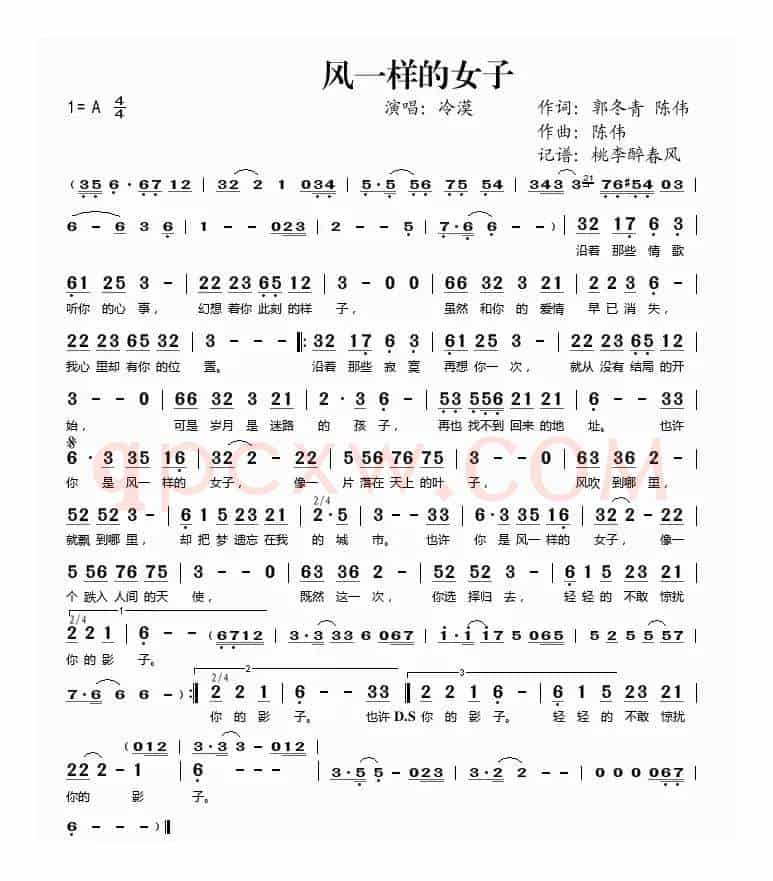 风一样的女子
1= A 4/4 演唱：冷漠 作词：郭冬青 陈伟
作曲：陈伟
记谱：桃李醉春风
(35 6·67 12 | 32 2 1 034 | 5·5 56 75 54 | 343 3 21 76#54 03 |
6 - 6 3 6 | 1 - - 023 | 2 - - 5 | 7·6 6 - -) | 32 17 6 3 |
沿着 那些 情 歌
61 25 3 - | 22 23 65 12 | 3 - 0 0 | 66 32 3 21 | 22 3 6 - |
听你 的心 事， 幻想 着你 此刻 的样 子， 虽然 和你 的 爱情 早已 消 失，
22 23 65 32 | 3 - - - |: 32 17 6 3 | 61 25 3 - | 22 23 65 12 |
我心 里却 有你 的位 置。 沿着 那些 寂 寞 再想 你一 次， 就从 没有 结局 的开
3 - - 0 | 66 32 3 21 | 2·3 6 - | 53 556 21 21 | 6 - - 33 |
始， 可是 岁月 是 迷路 的 孩 子， 再也 找不到 回来 的地 址。 也许
6·3 35 16 | 32 2 - 22 | 5 56 76 75 | 3 - - 0 | 63 36 2 2 |
你 是 风一 样的 女子， 像一 片 落在 天上 的叶 子， 风吹 到哪 里，
qpcxw.COM
52 52 3 - | 6 1 5 23 21 | 2/4 2·5 | 4 - - 33 | 63·35 16 | 32 2 - 22 |
就飘 到哪 里， 却 把 梦 遗忘 在我 的 城 市。 也许 你 是风一 样的 女子， 像一
5 56 76 75 | 3 - - 0 | 63 36 2 - | 52 52 3 - | 6 1 5 23 21 |
个 跌入 人间 的天 使， 既然 这一 次， 你选 择归 去， 轻 轻 的 不敢 惊扰
1
2/4 2 2 1 | 6 - - (6712 | 3·3 33 6 067 | i·i i7 5 065 | 5 25 55 - |
你 的 影 子。
7·6 6 6 - ) :| 2 2/4 2 2 1 | 6 - - 33 | 3 2 2 1 | 6 - - - | 6 1 5 23 21 |
你 的 影 子。 也许 D.S 你 的 影 子。 轻 轻 的 不敢 惊扰
(012 | 3·3 3 - 012
22 2 - 1 | 6 - - - | 3·5 5 - 023 | 3·2 2 - - | 0 0 0 067 |
你的 影 子。
6 - - - ) ‖